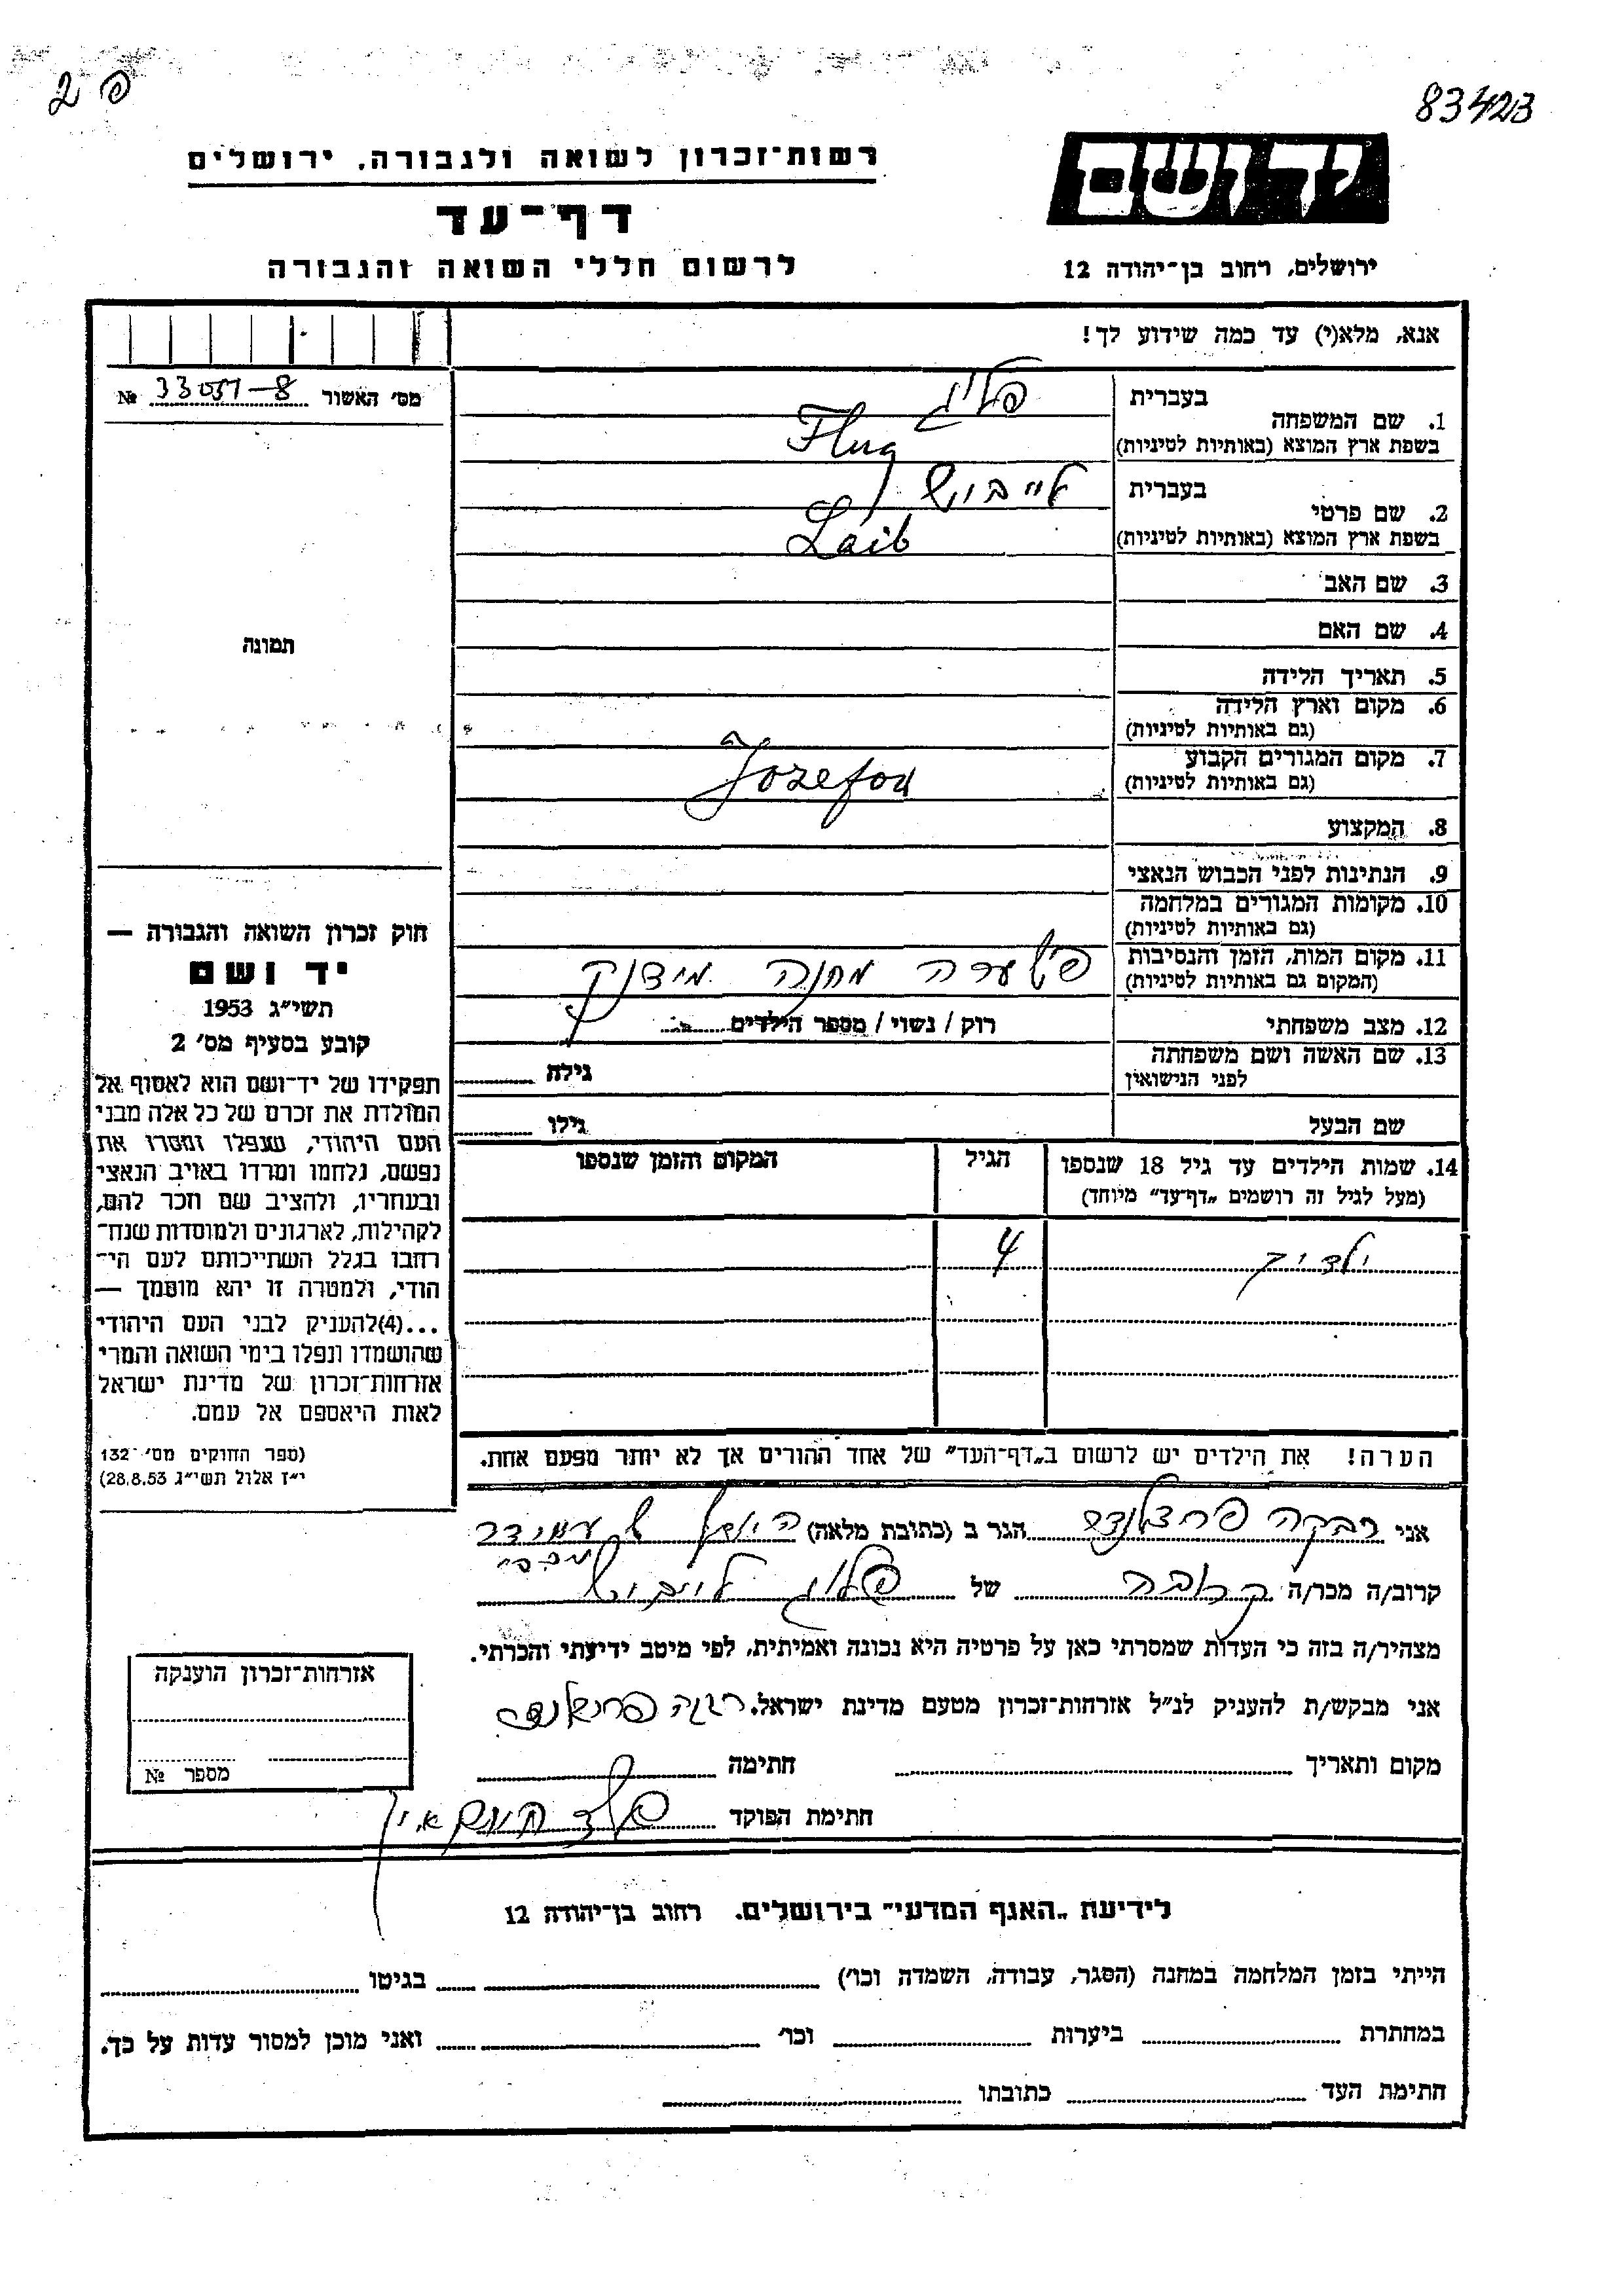 פ 2
83423
יד ושם
רשות־זכרון לשואה ולגבורה, ירושלים
דף־עד
לרשום חללי השואה והגבורה
ירושלים, רחוב בן־יהודה 12
אנא, מלא(י) עד כמה שידוע לך!
מס׳ האשור № 33051-8
תמונה
1. שם המשפחה בעברית פלוג
בשפת ארץ המוצא (באותיות לטיניות) Flug
2. שם פרטי בעברית לייביש
בשפת ארץ המוצא (באותיות לטיניות) Laib
3. שם האב
4. שם האם
5. תאריך הלידה
6. מקום וארץ הלידה
(גם באותיות לטיניות)
7. מקום המגורים הקבוע
(גם באותיות לטיניות) Jozefow
8. המקצוע
9. הנתינות לפני הכבוש הנאצי
10. מקומות המגורים במלחמה
(גם באותיות לטיניות)
11. מקום המות, הזמן והנסיבות
(המקום גם באותיות לטיניות) מחנה מידנק
12. מצב משפחתי רוק / נשוי / מספר הילדים
13. שם האשה ושם משפחתה גילה
לפני הנישואין
שם הבעל גילו
14. שמות הילדים עד גיל 18 שנספו הגיל המקום והזמן שנספו
(מעל לגיל זה רושמים „דף־עד״ מיוחד)
4
הערה! את הילדים יש לרשום ב„דף־העד״ של אחד ההורים אך לא יותר מפעם אחת.
חוק זכרון השואה והגבורה —
יד ושם
תשי״ג 1953
קובע בסעיף מס׳ 2
תפקידו של יד־ושם הוא לאסוף אל
המולדת את זכרם של כל אלה מבני
העם היהודי, שנפלו ומסרו את
נפשם, נלחמו ומרדו באויב הנאצי
ובעוזריו, ולהציב שם וזכר להם,
לקהילות, לארגונים ולמוסדות שנח־
רבו בגלל השתייכותם לעם הי־
הודי, ולמטרה זו יהא מוסמך —
...(4)להעניק לבני העם היהודי
שהושמדו ונפלו בימי השואה והמרי
אזרחות־זכרון של מדינת ישראל
לאות היאספם אל עמם.
(ספר החוקים מס׳ 132
י״ז אלול תשי״ג 28.8.53)
אני רבקה פרצלנד הגר ב (כתובת מלאה)
קרוב/ה מכר/ה קרובה של פלוג לייביש
מצהיר/ה בזה כי העדות שמסרתי כאן על פרטיה היא נכונה ואמיתית, לפי מיטב ידיעתי והכרתי.
אני מבקש/ת להעניק לנ״ל אזרחות־זכרון מטעם מדינת ישראל. רבקה פרצלנד
מקום ותאריך חתימה
חתימת הפוקד
אזרחות־זכרון הוענקה
מספר №
לידיעת „האגף המדעי״ בירושלים. רחוב בן־יהודה 12
הייתי בזמן המלחמה במחנה (הסגר, עבודה, השמדה וכו׳) בגיטו
במחתרת ביערות וכו׳ ואני מוכן למסור עדות על כך.
חתימת העד כתובתו